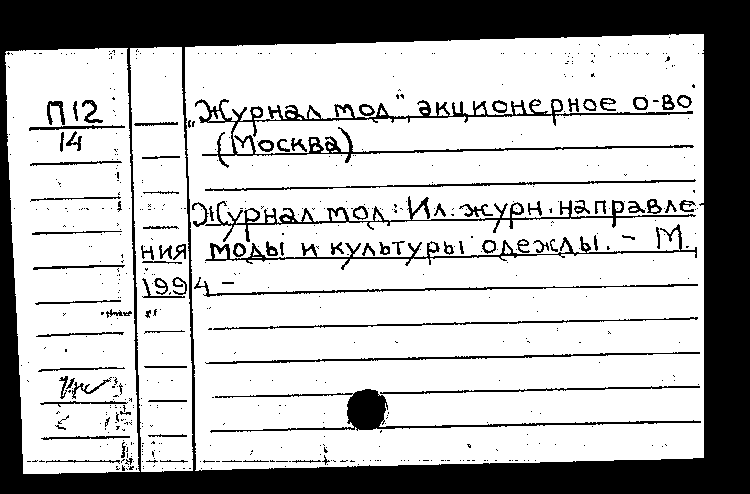 П12
14
„Журнал мод", акционерное о-во
(Москва)
Журнал мод: Ил. журн. направле-
ния моды и культуры одежды. - М.,
1994 -